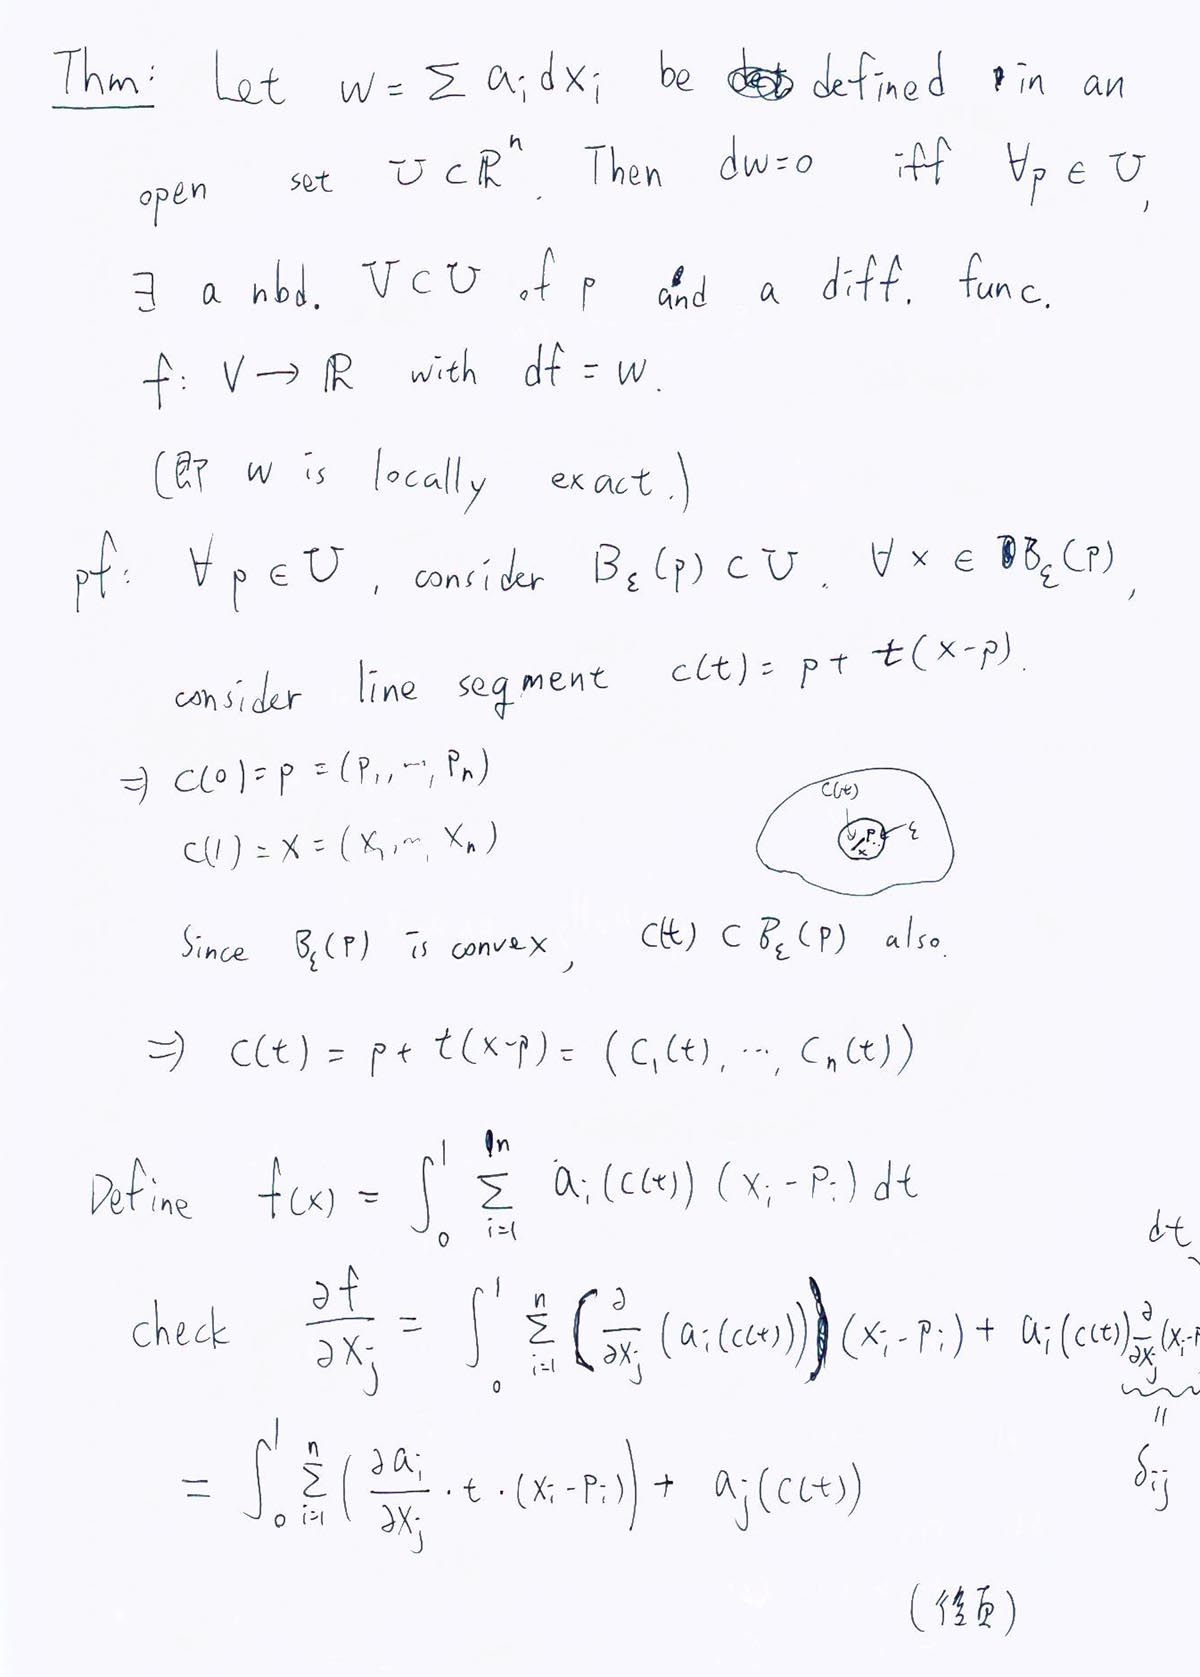 Thm: Let w = Σ aᵢ dxᵢ be defined in an
open set U ⊂ ℝⁿ. Then dw=0 iff ∀p ∈ U,
∃ a nbd. V ⊂ U of p and a diff. func.
f: V → ℝ with df = w.
(即 w is locally exact.)
pf: ∀ p ∈ U, consider B_ε(p) ⊂ U. ∀ x ∈ B_ε(p),
consider line segment c(t) = p + t(x-p).
⇒ c(0) = p = (p₁, ⋯, pₙ)
c(1) = x = (x₁, ⋯, xₙ)
c(t)
p
ε
x
Since B_ε(p) is convex, c(t) ⊂ B_ε(p) also.
⇒ c(t) = p + t(x-p) = (c₁(t), ⋯, cₙ(t))
Define f(x) = ∫₀¹ Σᵢ₌₁ⁿ aᵢ(c(t)) (xᵢ - pᵢ) dt
dt
check ∂f/∂xⱼ = ∫₀¹ Σᵢ₌₁ⁿ (∂/∂xⱼ (aᵢ(c(t)))) (xᵢ - pᵢ) + aᵢ(c(t)) ∂/∂xⱼ (xᵢ-p
॥
δᵢⱼ
= ∫₀¹ Σᵢ₌₁ⁿ (∂aᵢ/∂xⱼ · t · (xᵢ - pᵢ)) + aⱼ(c(t))
(後頁)